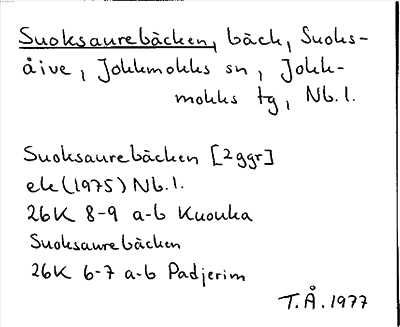 Suoksaurebäcken, bäck, Suoks-
åive, Jokkmokks sn, Jokk-
mokks tg, Nb.l.
Suoksaurebäcken [2ggr]
ek(1975) Nb.l.
26K 8-9 a-b Kuouka
Suoksaurebäcken
26K 6-7 a-b Padjerim
T.Å. 1977